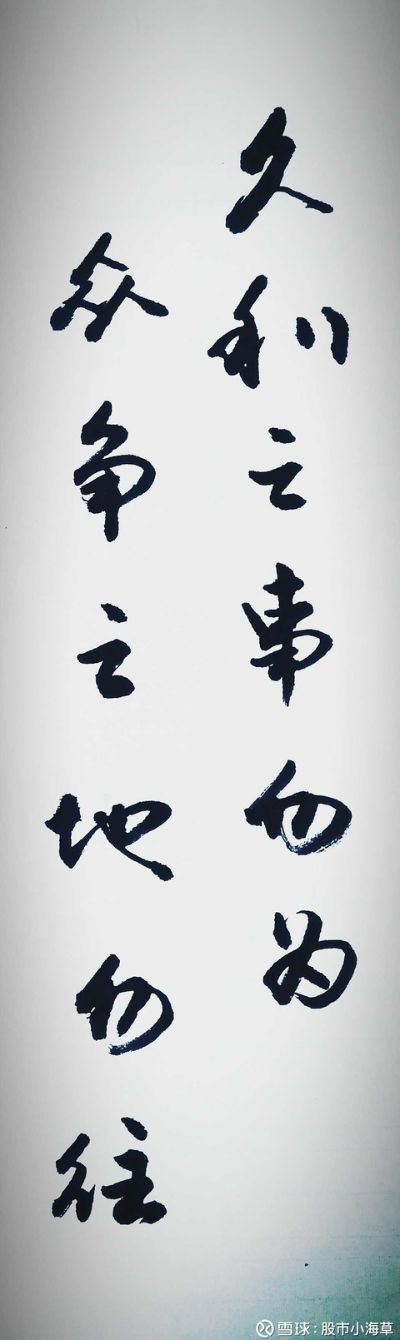 久利之事勿为
众争之地勿往
雪球：股市小海草